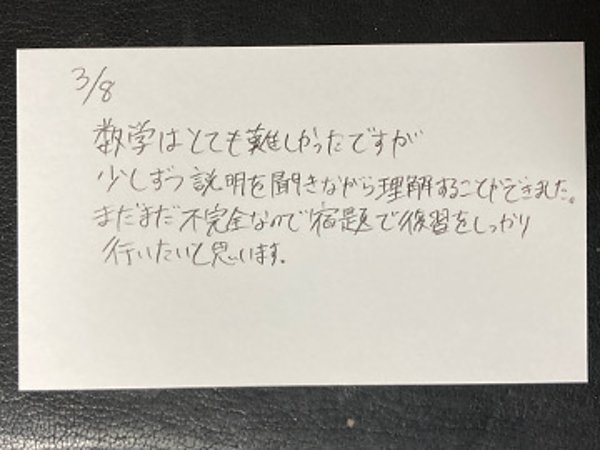 3/8
数学はとても難しかったですが
少しずつ説明を聞きながら理解することができました。
まだまだ不完全なので宿題で復習をしっかり
行いたいと思います。